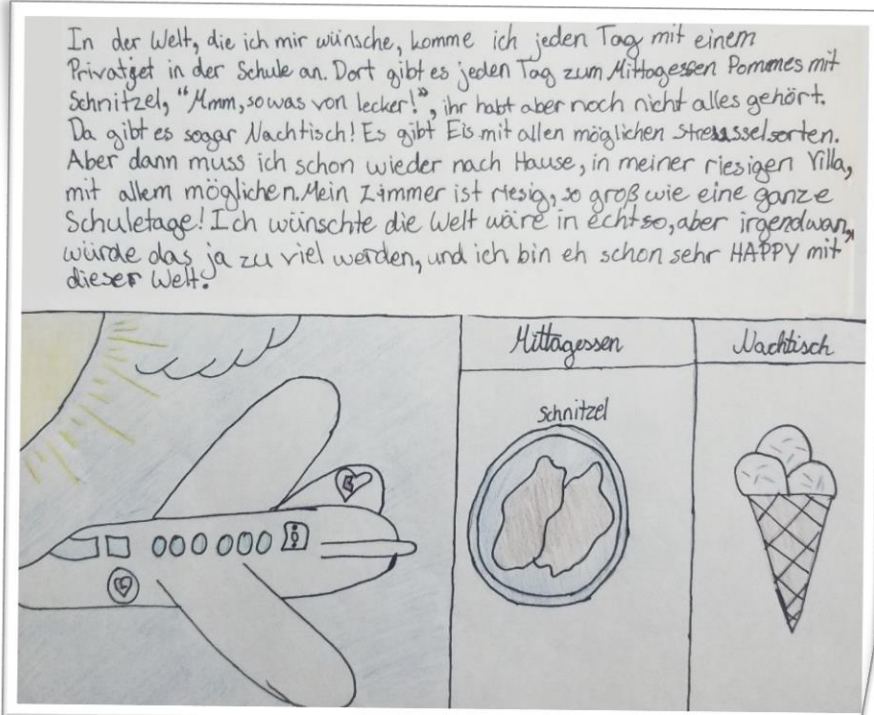 In der Welt, die ich mir wünsche, komme ich jeden Tag mit einem
Privatjet in der Schule an. Dort gibt es jeden Tag zum Mittagessen Pommes mit
Schnitzel, "Mmm, sowas von lecker!", ihr habt aber noch nicht alles gehört.
Da gibt es sogar Nachtisch! Es gibt Eis mit allen möglichen
Aber dann muss ich schon wieder nach Hause, in meiner riesigen Villa,
mit allem möglichen. Mein Zimmer ist riesig, so groß wie eine ganze
Schuletage! Ich wünschte die Welt wäre in echt so, aber irgendwan,
würde das ja zu viel werden, und ich bin eh schon sehr HAPPY mit
dieser Welt.
Mittagessen
Nachtisch
Schnitzel